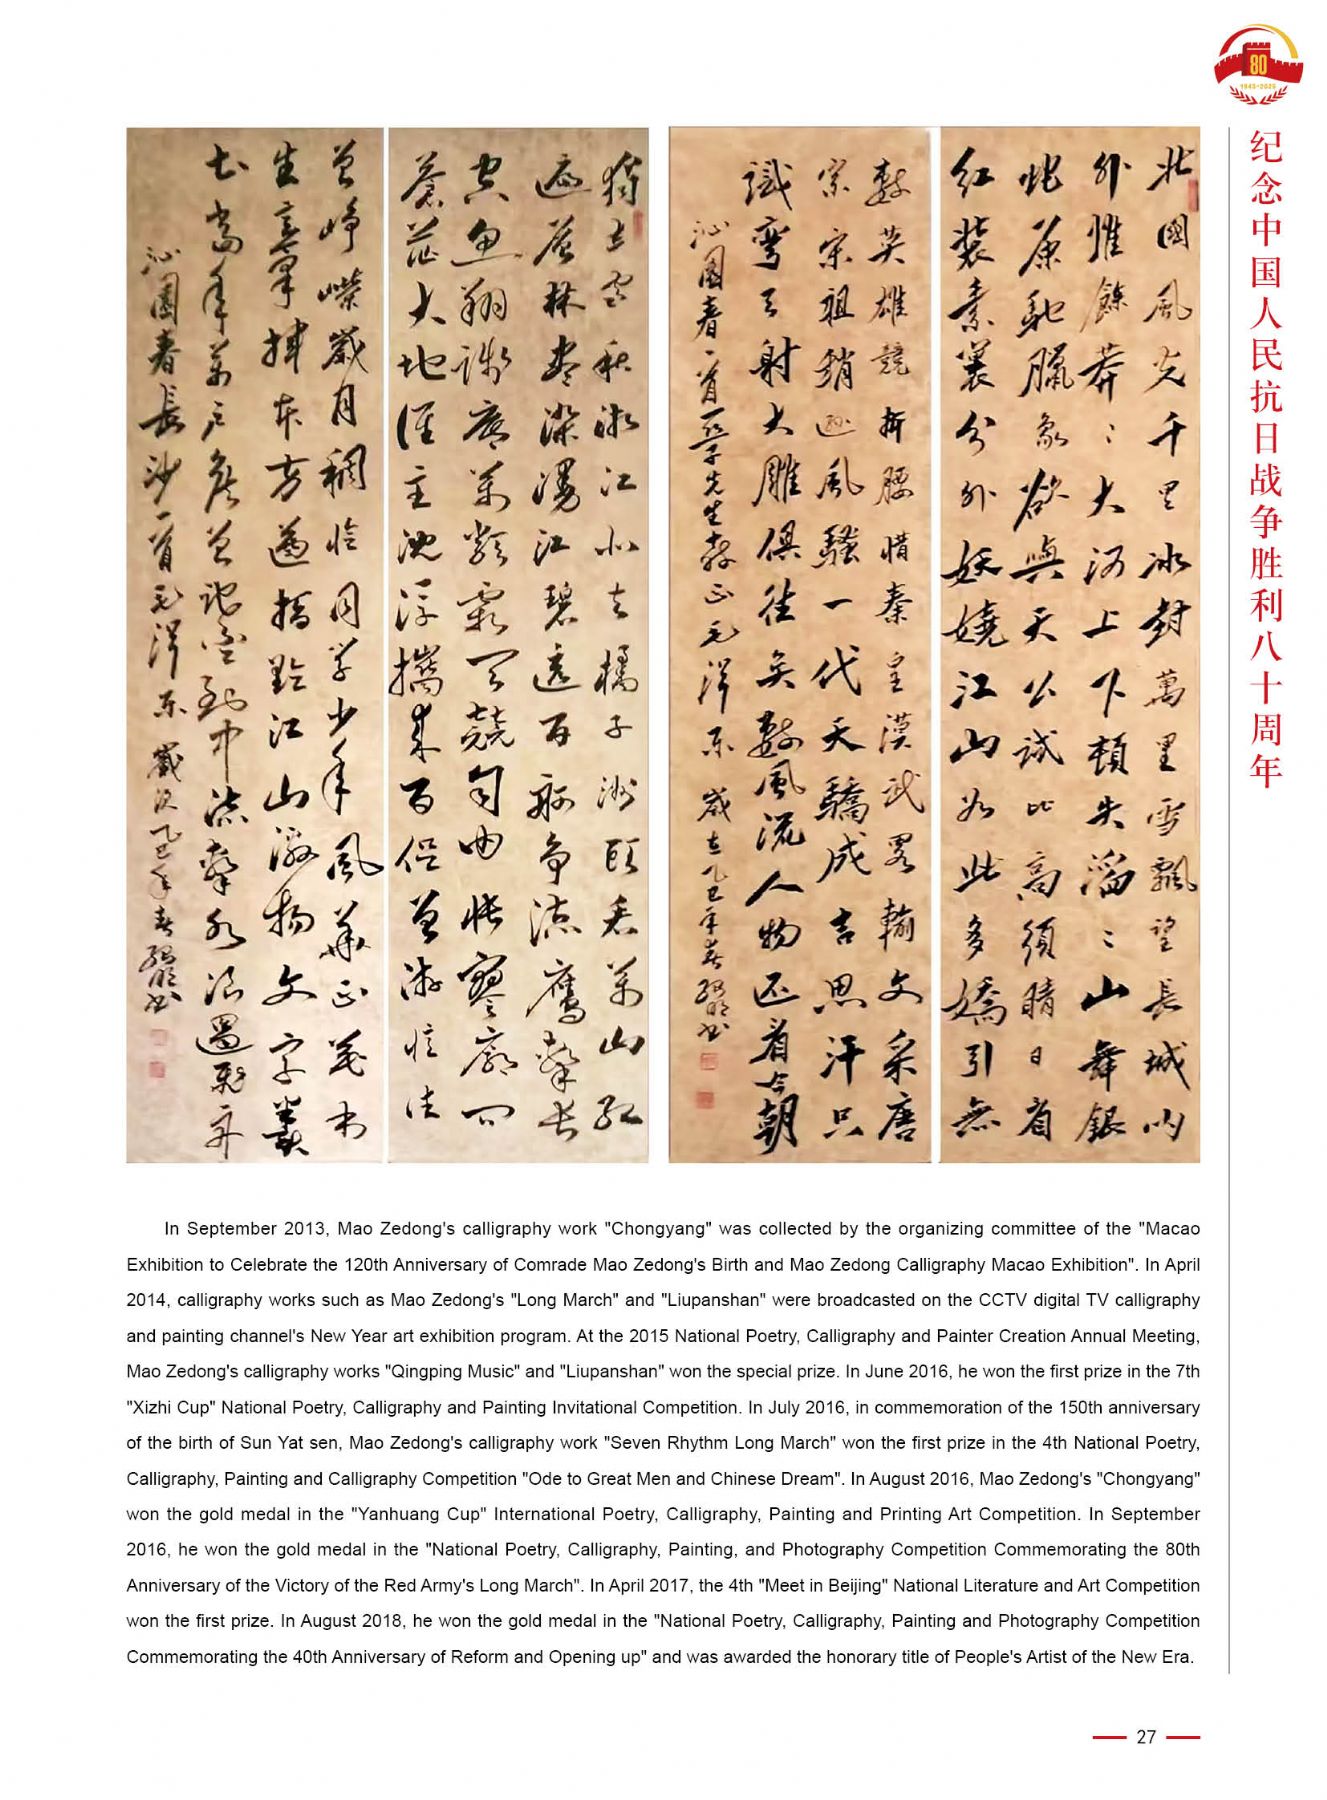 80
1945-2025
纪念中国人民抗日战争胜利八十周年
北國風光千里冰封萬里雪飄望長城内
外惟餘莽〻大河上下頓失滔〻山舞銀
蛇原馳臘象欲與天公試比高須晴日看
紅裝素裹分外妖嬈江山如此多嬌引無
數英雄競折腰惜秦皇漢武略輸文采唐
宗宋祖稍遜風騷一代天驕成吉思汗只
識彎弓射大雕俱往矣數風流人物还看今朝
沁園春一首 先生教正毛澤东 歲在乙巳年春 书
獨立寒秋湘江北去橘子洲頭看萬山红
遍層林盡染漫江碧透百舸争流鷹擊長
空魚翔淺底萬類霜天競自由悵寥廓问
蒼茫大地誰主沈浮攜來百侣曾游憶往
昔崢嶸歲月稠恰同学少年風華正茂书
生意氣揮斥方遒指點江山激揚文字糞
土當年萬户侯曾記否到中流擊水浪遏飛舟
沁園春長沙一首毛澤东 歲次乙巳年春 书
In September 2013, Mao Zedong's calligraphy work "Chongyang" was collected by the organizing committee of the "Macao
Exhibition to Celebrate the 120th Anniversary of Comrade Mao Zedong's Birth and Mao Zedong Calligraphy Macao Exhibition". In April
2014, calligraphy works such as Mao Zedong's "Long March" and "Liupanshan" were broadcasted on the CCTV digital TV calligraphy
and painting channel's New Year art exhibition program. At the 2015 National Poetry, Calligraphy and Painter Creation Annual Meeting,
Mao Zedong's calligraphy works "Qingping Music" and "Liupanshan" won the special prize. In June 2016, he won the first prize in the 7th
"Xizhi Cup" National Poetry, Calligraphy and Painting Invitational Competition. In July 2016, in commemoration of the 150th anniversary
of the birth of Sun Yat sen, Mao Zedong's calligraphy work "Seven Rhythm Long March" won the first prize in the 4th National Poetry,
Calligraphy, Painting and Calligraphy Competition "Ode to Great Men and Chinese Dream". In August 2016, Mao Zedong's "Chongyang"
won the gold medal in the "Yanhuang Cup" International Poetry, Calligraphy, Painting and Printing Art Competition. In September
2016, he won the gold medal in the "National Poetry, Calligraphy, Painting, and Photography Competition Commemorating the 80th
Anniversary of the Victory of the Red Army's Long March". In April 2017, the 4th "Meet in Beijing" National Literature and Art Competition
won the first prize. In August 2018, he won the gold medal in the "National Poetry, Calligraphy, Painting and Photography Competition
Commemorating the 40th Anniversary of Reform and Opening up" and was awarded the honorary title of People's Artist of the New Era.
27